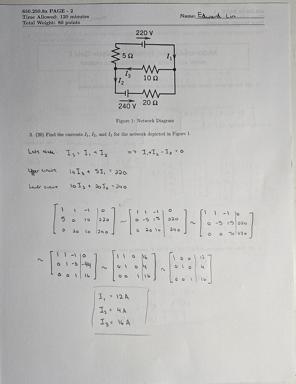 650.250.8x PAGE - 2
Time Allowed: 120 minutes
Total Weight: 80 points
Name: Edward Lin
220 V
5 Ω
I₁
I₃
10 Ω
I₂
240 V
20 Ω
Figure 1: Network Diagram
3. (20) Find the currents I₁, I₂, and I₃ for the network depicted in Figure 1.
node I₃ = I₁ + I₂ => I₁ + I₂ - I₃ = 0
10I₃ + 5I₁ = 220
10I₃ + 20I₂ = 240
[ 1 1 -1 | 0
5 0 10 | 220
0 20 10 | 240 ] ~ [ 1 1 -1 | 0
0 -5 15 | 220
0 20 10 | 240 ] ~ [ 1 1 -1 | 0
0 -5 15 | 220
~ [ 1 1 -1 | 0
0 1 -3 | -44
0 0 1 | 16 ] ~ [ 1 1 0 | 16
0 1 0 | 4
0 0 1 | 16 ] ~ [ 1 0 0 | 12
0 1 0 | 4
0 0 1 | 16 ]
I₁ = 12A
I₂ = 4A
I₃ = 16A